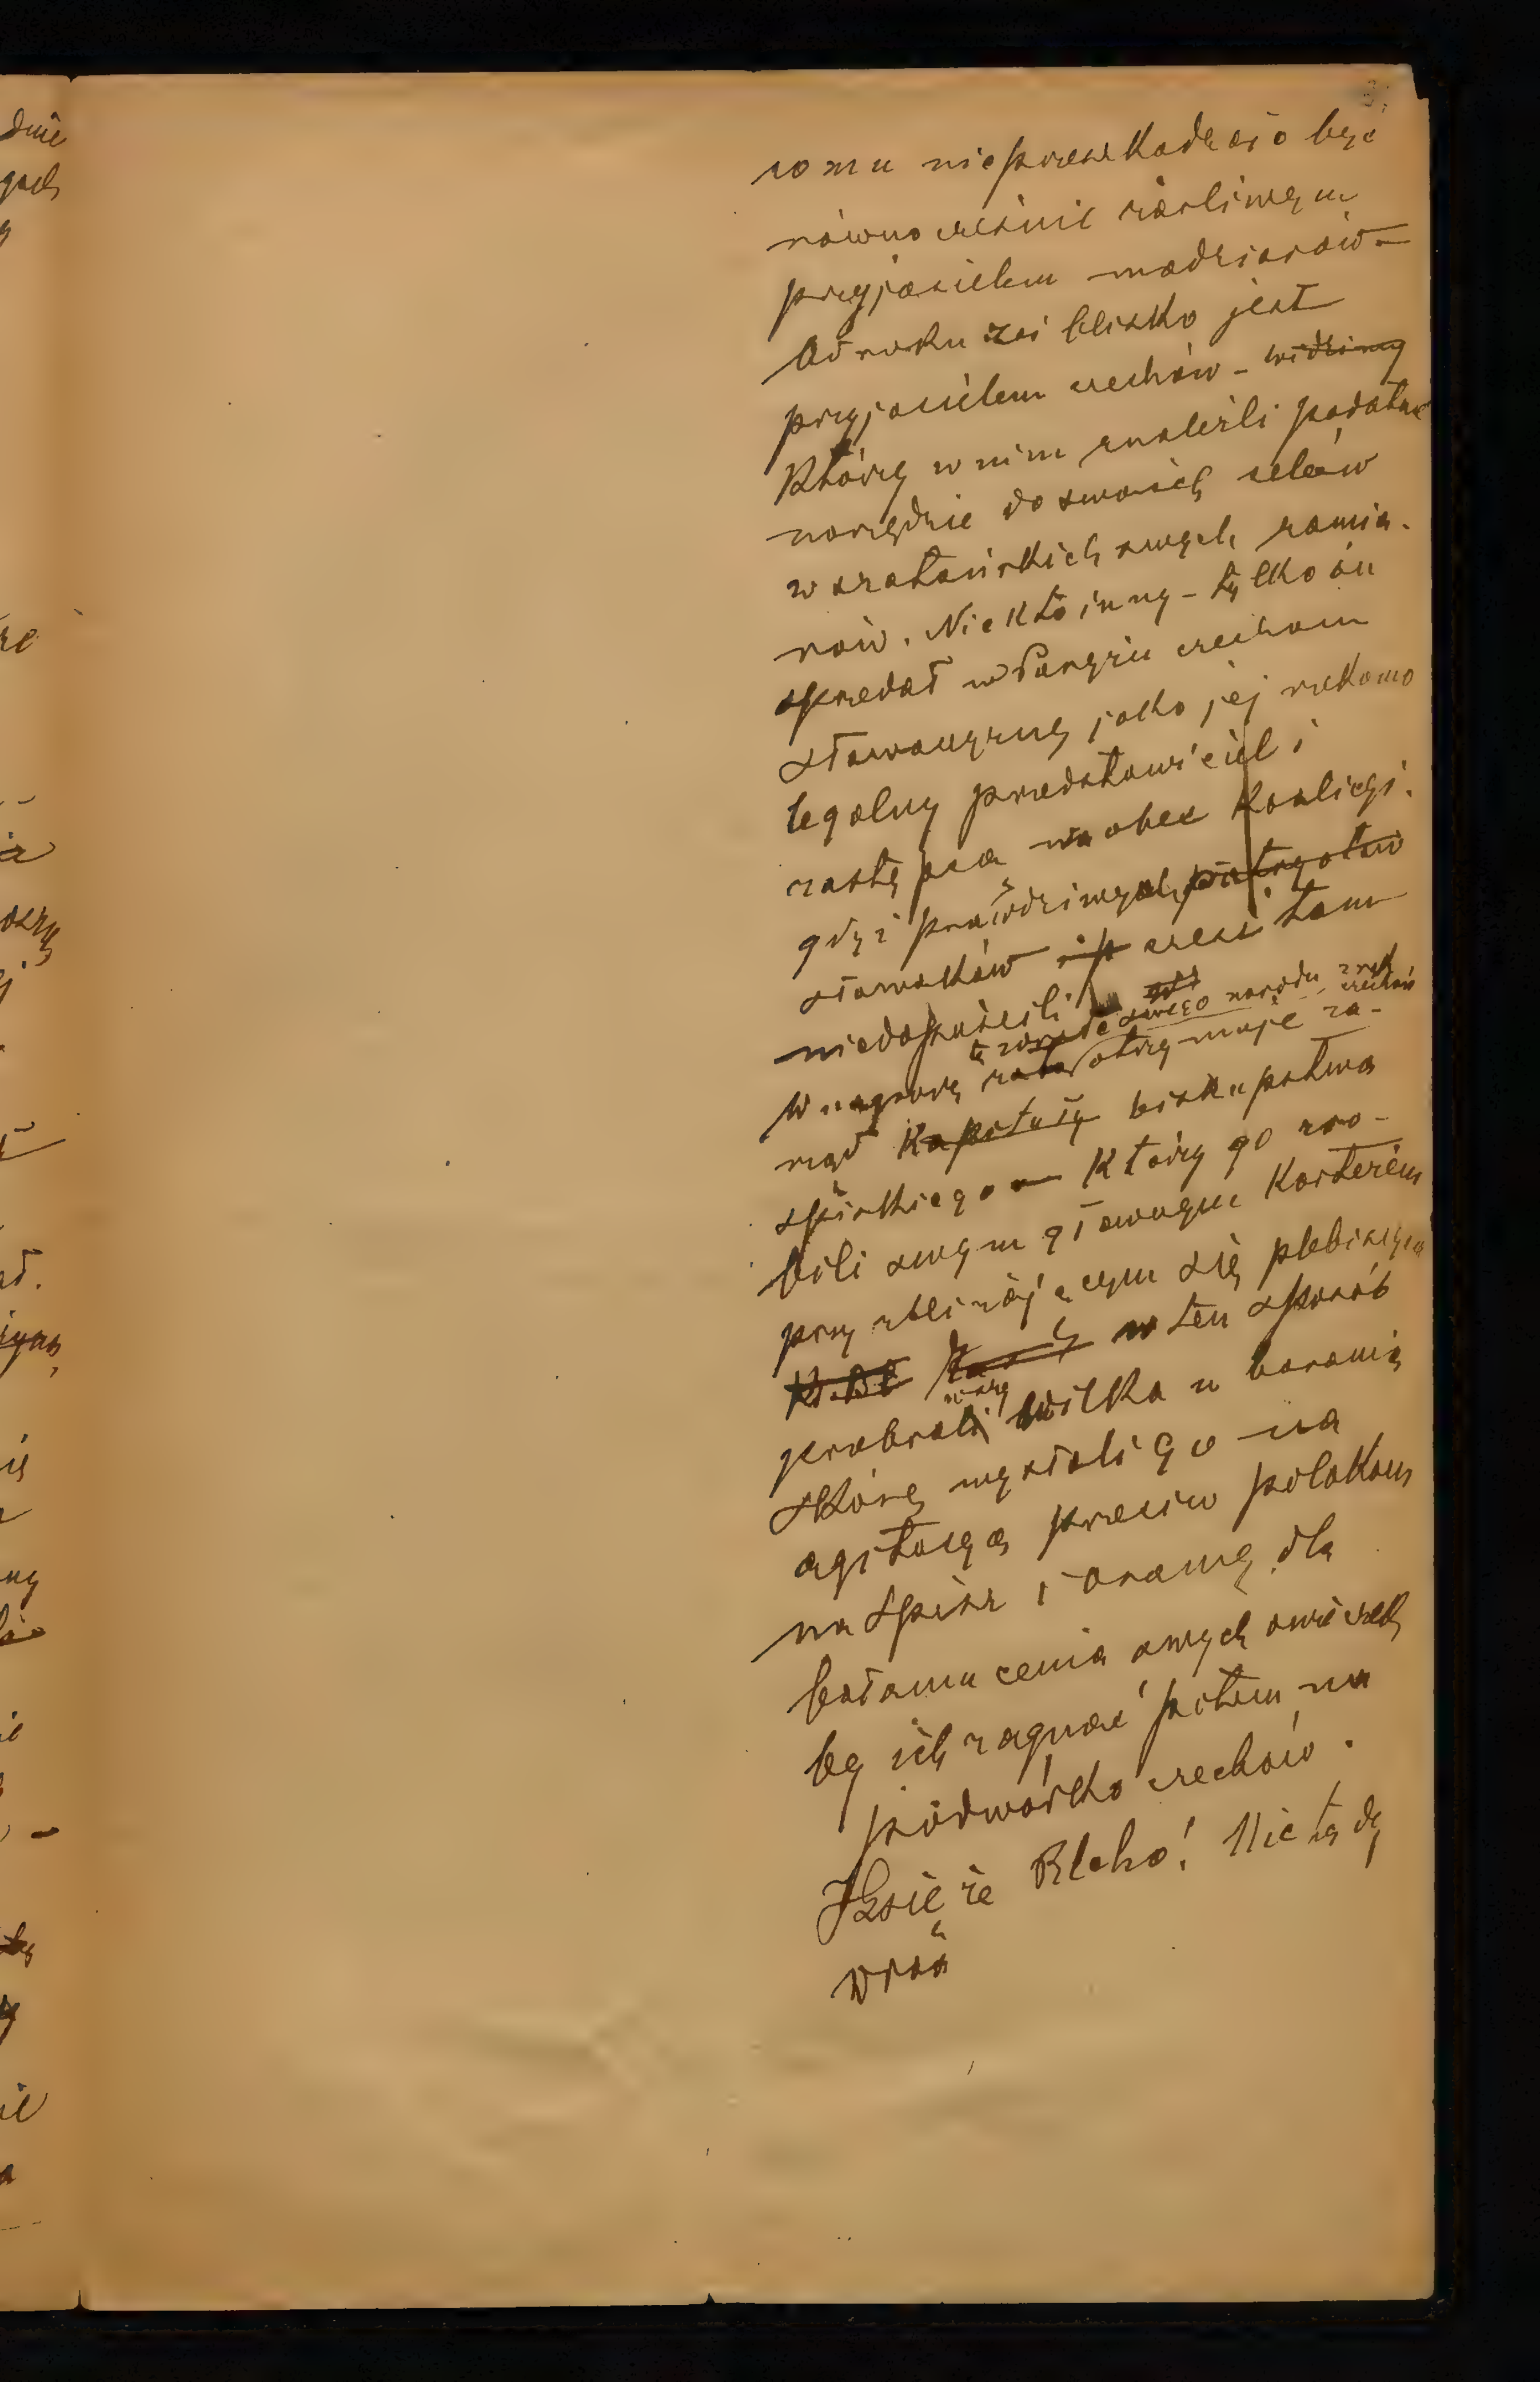 31
somu nieprzeszkadzało być
równocześnie żarliwym
przyjacielem madziarów –
Od roku zaś blisko jest
przyjacielem czechów – widzimy
Którzy w nim znaleźli podatne
narzędzie do swoich celów
w szatańskich swych zamia-
rów. Nie kto inny – tylko on
sprzedał w Paryżu czechom
słowaczyznę jako jej rzekomo
legalny przedstawiciel i
zastępca wobec Koalicji.
gdyż prawdziwych patryotów
słowaków czesi tam
niedopuścili
zdradę swego narodu z rąk czechów
W nagrodę otrzymuje za-
rząd Kapitułę biskupstwa
spiskiego Który go zro-
bili swym głównym Kortezem
przy zbliżającym się plebiscycie
w ten sposób
przebrali wilka w baranią
skórę wysłali go na
agitacyą przeciw polakom
na Spisz i Orawę dla
bałamucenia swych owieczek
by ich zagnać potem na
podwórko czechów.
Księże Blcho! Nie tędy